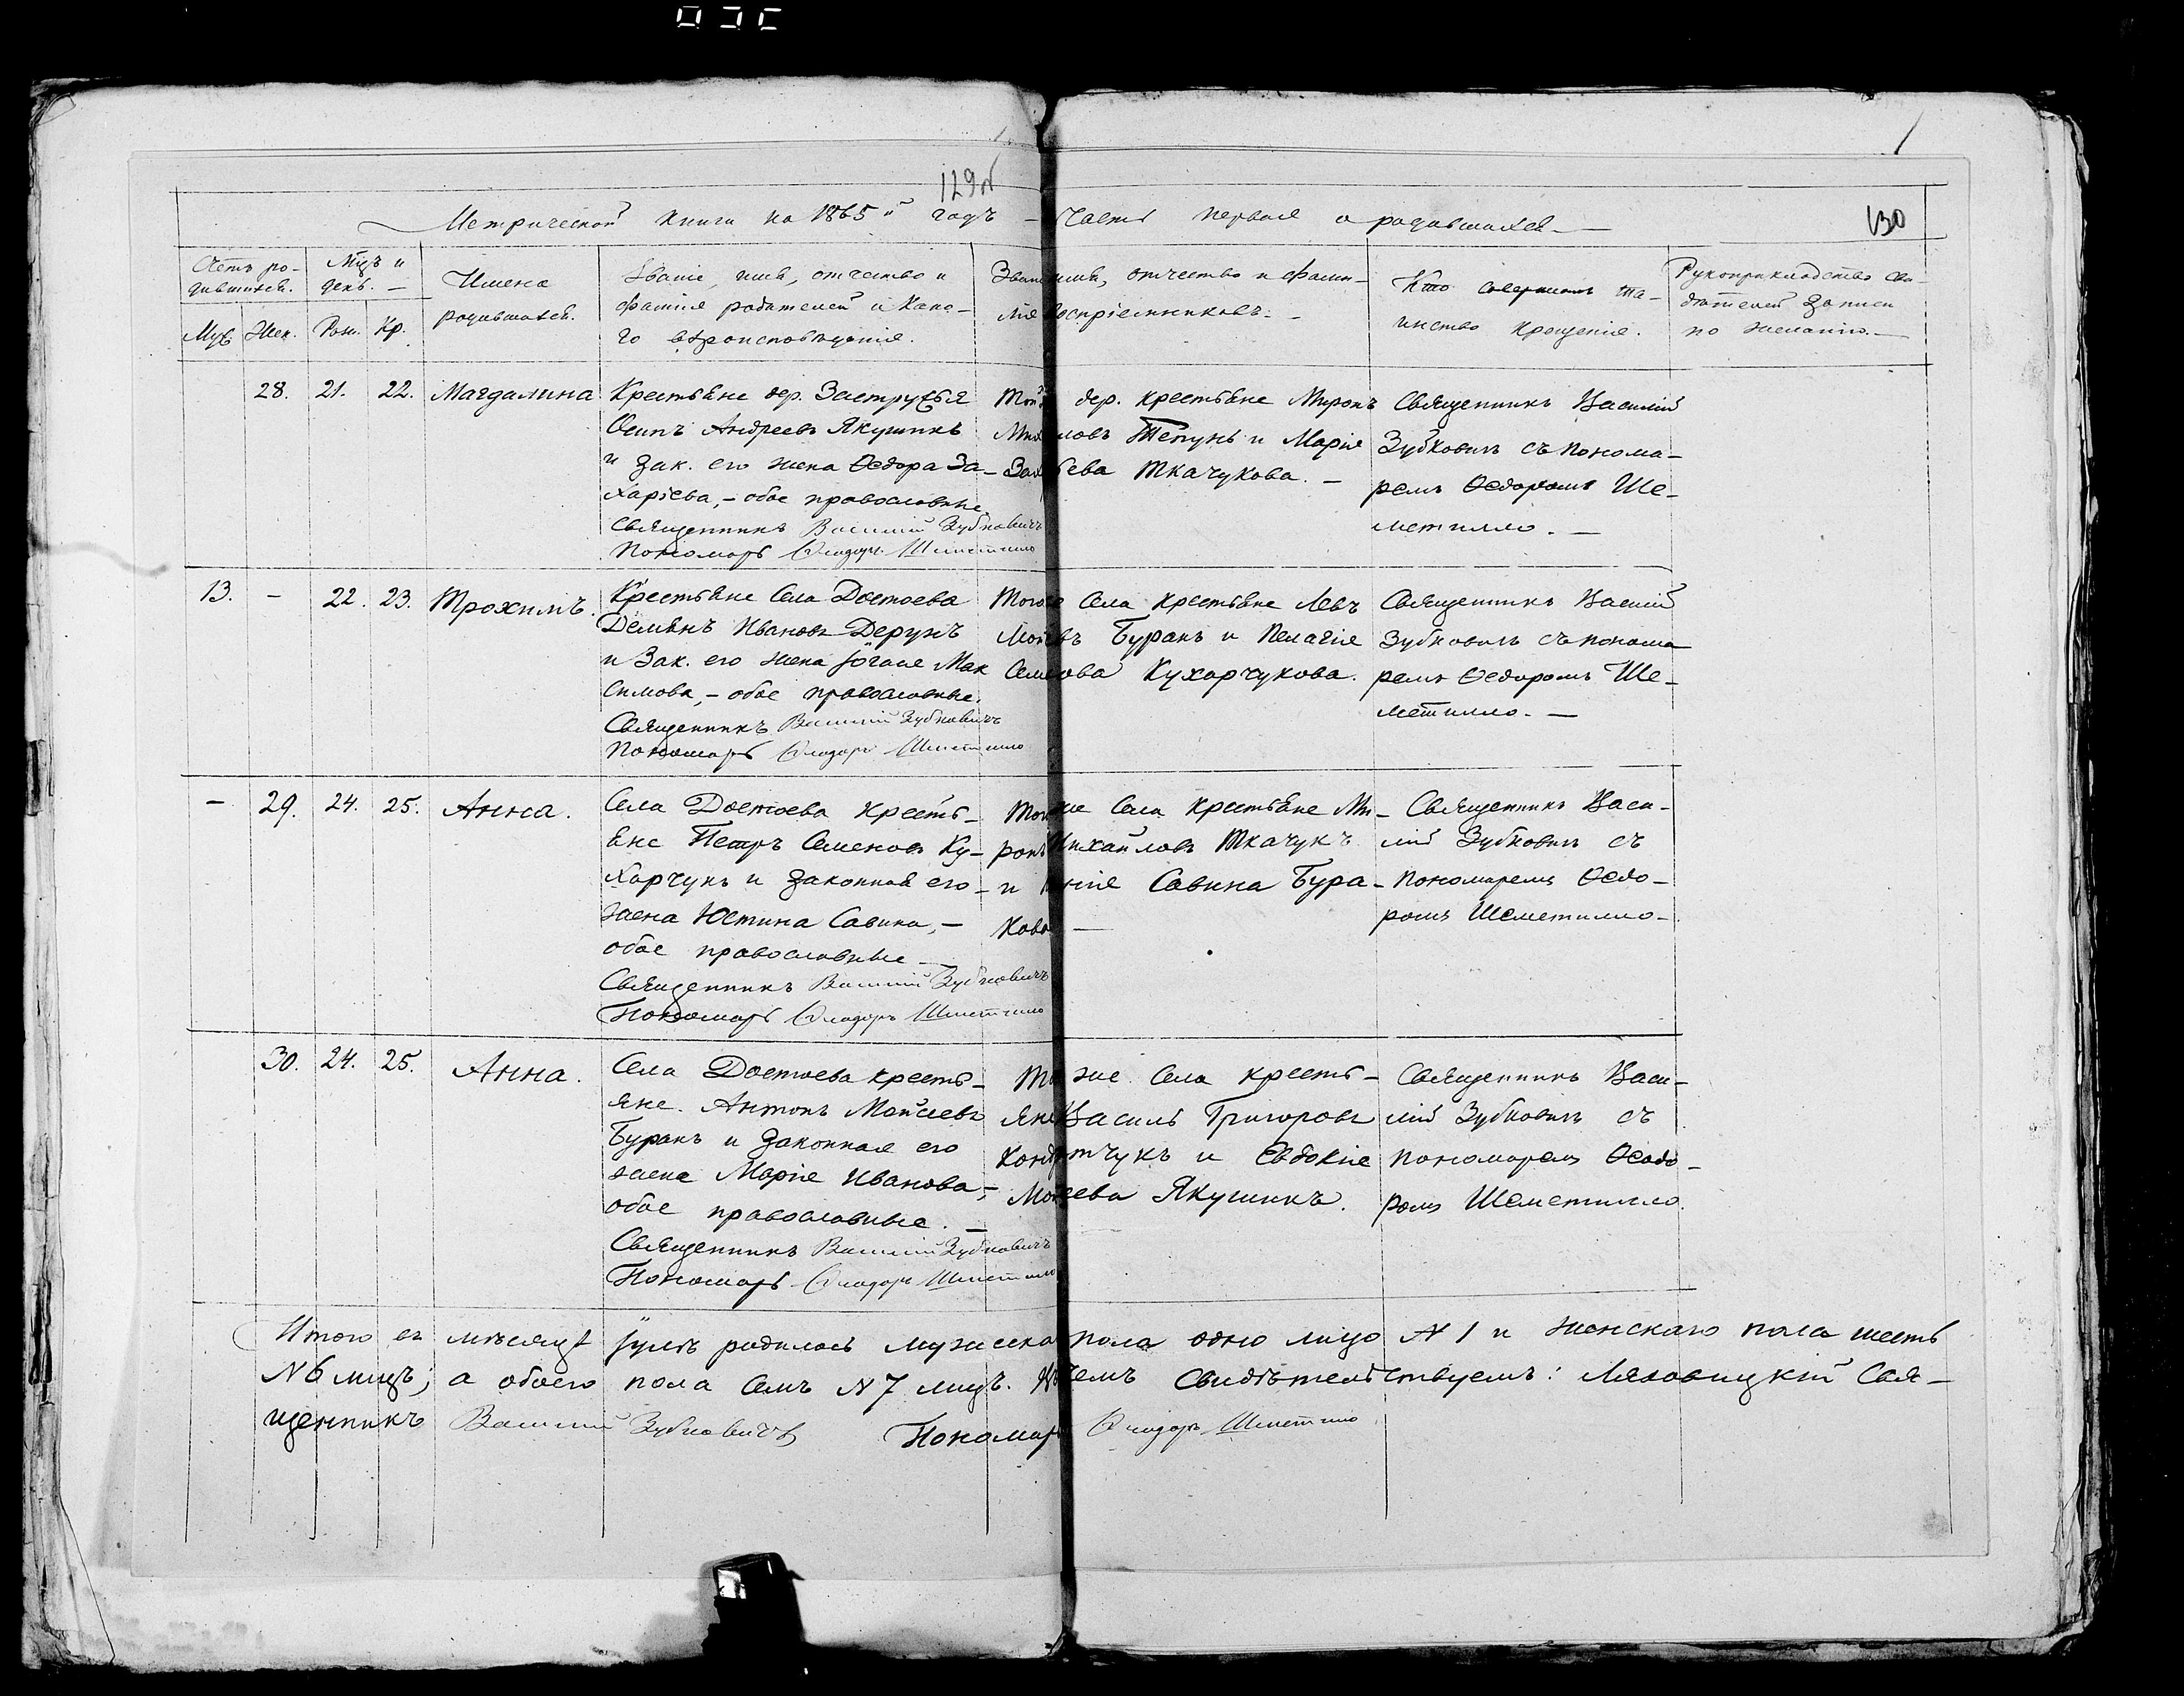 129об
Метрической книги на 1865й годъ – Часть первая о родившихся.
130
Счетъ ро-
дившихся.
Муж. Жен.
Мцъ и
день. –
Рож. Кр.
Имена
родившихся.
Званіе, имя, отчество и
фамилія родителей и како-
го вѣроисповѣданія.
Званіе, имя, отчество и фами-
лія воспріемниковъ. –
Кто совершалъ та-
инство крещенія.
Рукоприкладство сви-
дѣтелей записи
по желанію. –
28. 21. 22. Магдалина
Крестьяне дер.
Осипъ Андреевъ Якушикъ
и зак. его жена Ѳедора За-
харіева, – обое православные.
Священникъ Василій Зубковичъ
Пономарь Ѳеодоръ Шеметилло
Той же дер. крестьяне Миронъ
Михайловъ и Марія
Ткачукова. –
Священникъ Василій
Зубковичъ съ понома-
ремъ Ѳедоромъ Ше-
метилло. –
13. – 22. 23. Трохимъ.
Крестьяне Села Достоева
Демьянъ Ивановъ Дерунъ
и Зак. его жена Іоганна Мак
симова, – обое православные.
Священникъ Василій Зубковичъ
Пономарь Ѳеодоръ Шеметилло
Того же Села крестьяне Левъ
Буракъ и Пелагія
Семенова Кухарчукова.
Священникъ Василій
Зубковичъ съ понома
ремъ Ѳедоромъ Ше-
метилло. –
– 29. 24. 25. Анна.
Села Достоева кресть-
яне Петръ Семеновъ Ку-
харчукъ и законная его
жена Юстина Савина, –
обое православные –
Священникъ Василій Зубковичъ
Пономарь Ѳеодоръ Шеметилло
Того же Села крестьяне Ми-
ронъ Михайловъ Ткачукъ
и Савина Бура-
кова –
Священникъ Васи-
лій Зубковичъ съ
пономаремъ Ѳедо-
ромъ Шеметилло –
30. 24. 25. Анна.
Села Достоева кресть-
яне Антонъ Мойсеевъ
Буракъ и законная его
жена Марія Иванова, –
обое православные. –
Священникъ Василій Зубковичъ
Пономарь Ѳеодоръ Шеметилло
Того же Села кресть-
яне Василь Григоровъ
Кондратчукъ и Евдокія
Мойсеева Якушикъ.
Священникъ Васи-
лій Зубковичъ съ
пономаремъ Ѳеодо-
ромъ Шеметилло.
Итого въ мѣсяцѣ Іулѣ родилось мужеска пола одно лицо N 1 и женскаго пола шесть
N 6 лицъ; а обоего пола семъ N 7 лицъ. Въ чемъ Свидѣтельствуемъ: Ляховицкій Свя-
щенникъ Василій Зубковичъ Пономарь Ѳеодоръ Шеметилло